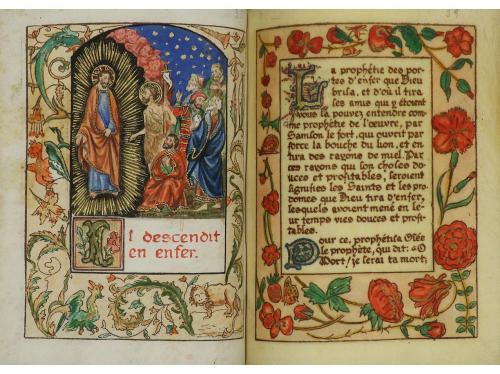 Il descendit
en enfer.
La prophétie des por-
tes d'enfer que Dieu
brisa, et d'où il tira
ses amis qui y étoient
vous la pouvez entendre com-
me prophétie de l'œuvre, par
Samson le fort, qui ouvrit par
force la bouche du lion, et en
tira des rayons de miel. Par
ces rayons qui son choses dou-
ces et profitables, seroient
signifiés les Saints et les pro-
domes que Dieu tira d'enfer,
lesquels avoient mené en le-
ur temps vies douces et profi-
tables.
Pour ce, prophétisa Osée
le prophète, qui dit: «O
Mort, je serai ta mort,